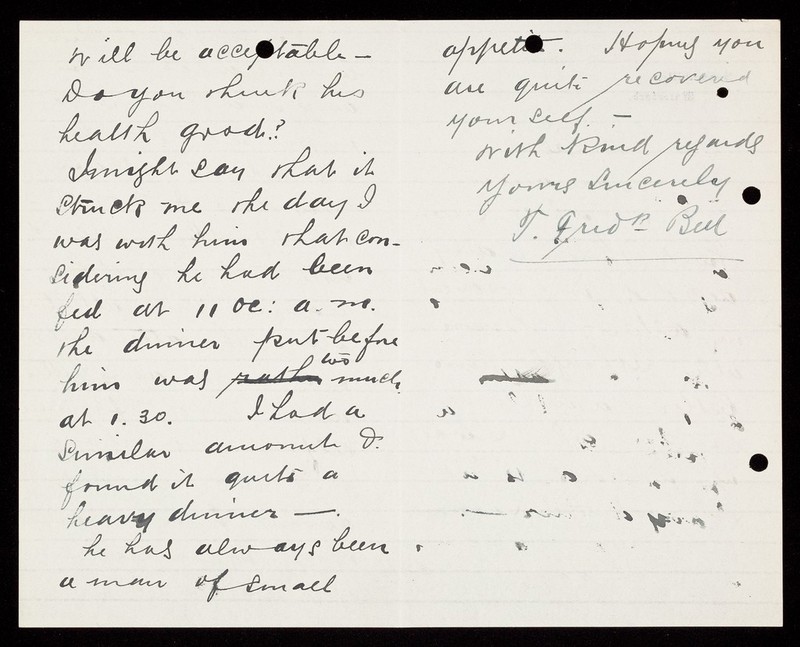 will be acceptable –
Do you think his
health good?
I might say that it
struck me the day I
was with him that con-
sidering he had been
fed at 11 oc: a.m.
the dinner put before
him was rather too much
at 1.30. I had a
similar amount &
found it quite a
heavy dinner –.
he has always been
a man of small
appetite. Hoping you
are quite recovered
yourself. –
with kind regards
Yours Sincerely
T. Fredk Bell